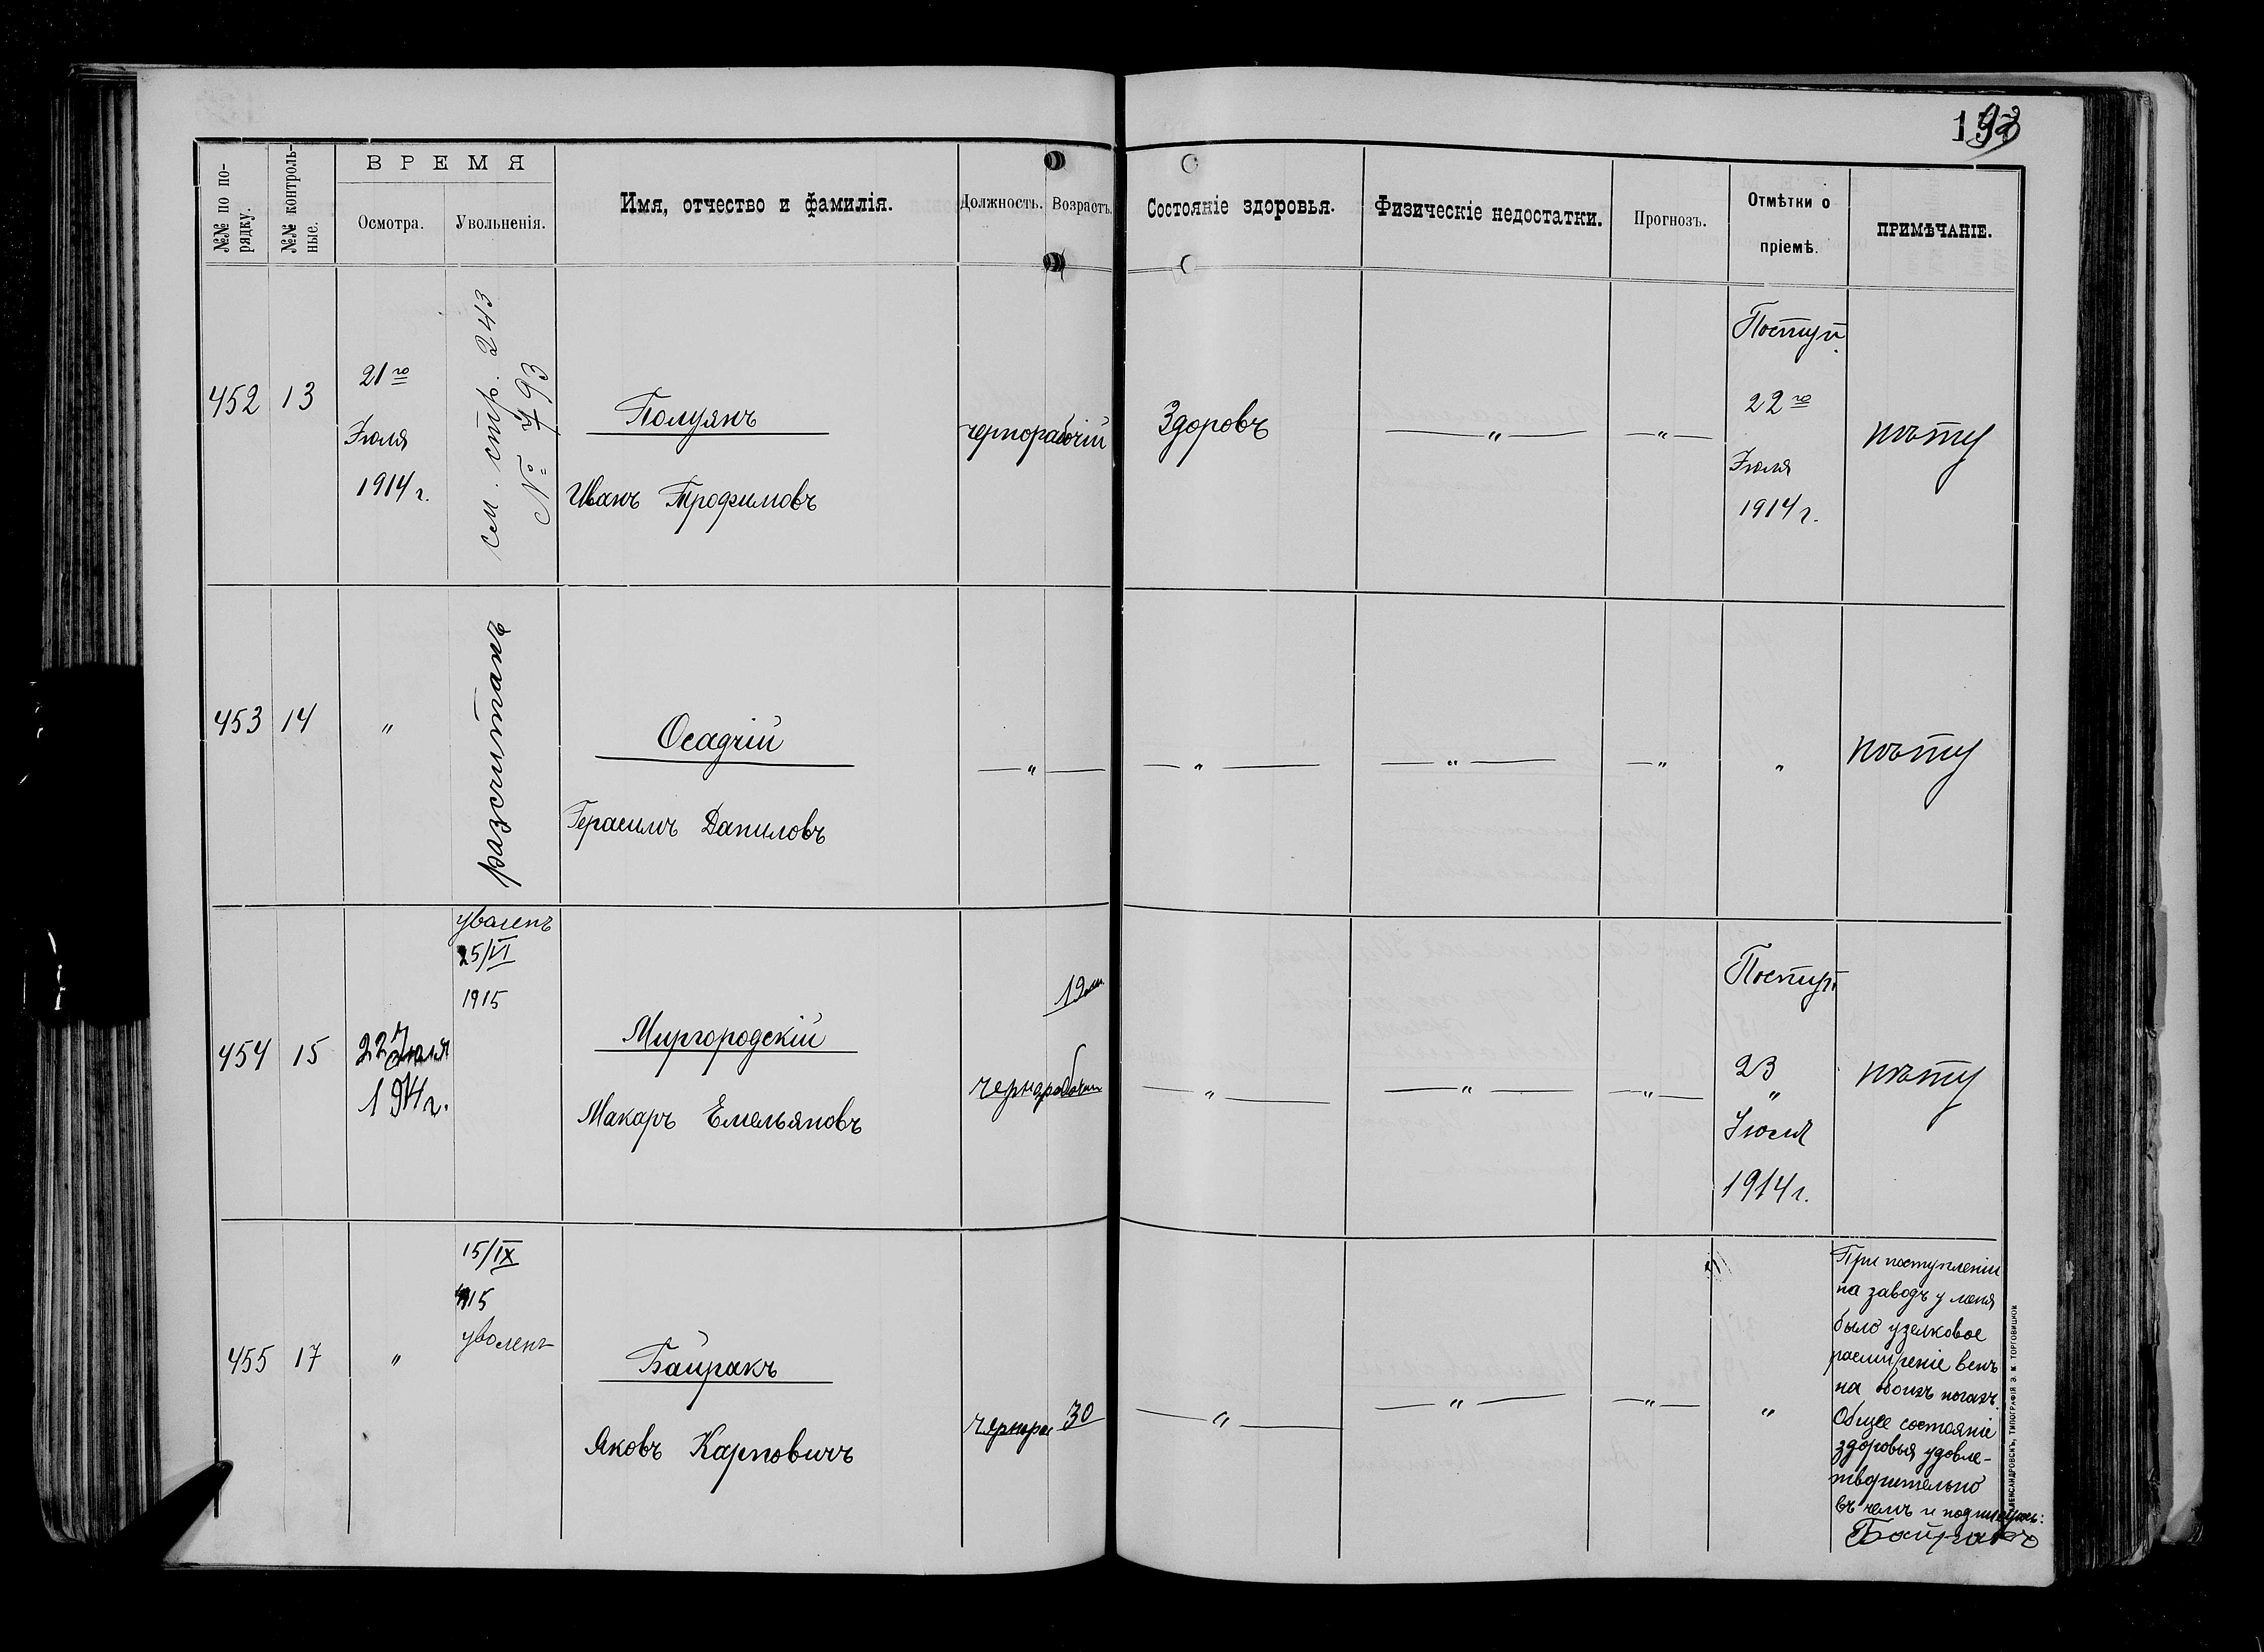 193
№№ по по-
рядку.
№№ контроль-
ные.
ВРЕМЯ
Осмотра.
Увольненія.
Имя, отчество и фамилія.
Должность.
Возрастъ.
Состояніе здоровья.
Физическіе недостатки.
Прогнозъ.
Отмѣтки о
пріемѣ.
ПРИМѢЧАНІЕ.
452
13
21го
Іюля
1914 г.
см. стр. 243
№ 793
Полуянъ
Иванъ Трофимовъ
чернорабочій
Здоровъ
— " —
— " —
Поступ.
22го
Іюля
1914 г.
нѣту
453
14
"
разсчитанъ
Осадчій
Герасимъ Даниловъ
— " —
— " —
— " —
— "
"
нѣту
454
15
22 Іюля
1914 г.
уволенъ
25/VI
1915
Миргородскій
Макаръ Емельяновъ
чернорабочій
19
— " —
— " —
— " —
Поступ.
23
"
Іюля
1914 г.
нѣту
455
17
"
15/IX
915
уволенъ
Байракъ
Яковъ Карповичъ
чернора
30
— " —
— " —
— " —
"
При поступленіи
на заводъ у меня
было узелковое
расширеніе венъ
на обоихъ ногахъ.
Общее состояніе
здоровья удовле-
творительно
въ чемъ и подписуюсь:
Байракъ
АЛЕКСАНДРОВСКЪ, ТИПОГРАФІЯ Э. М. ТОРГОВИЦКОЙ